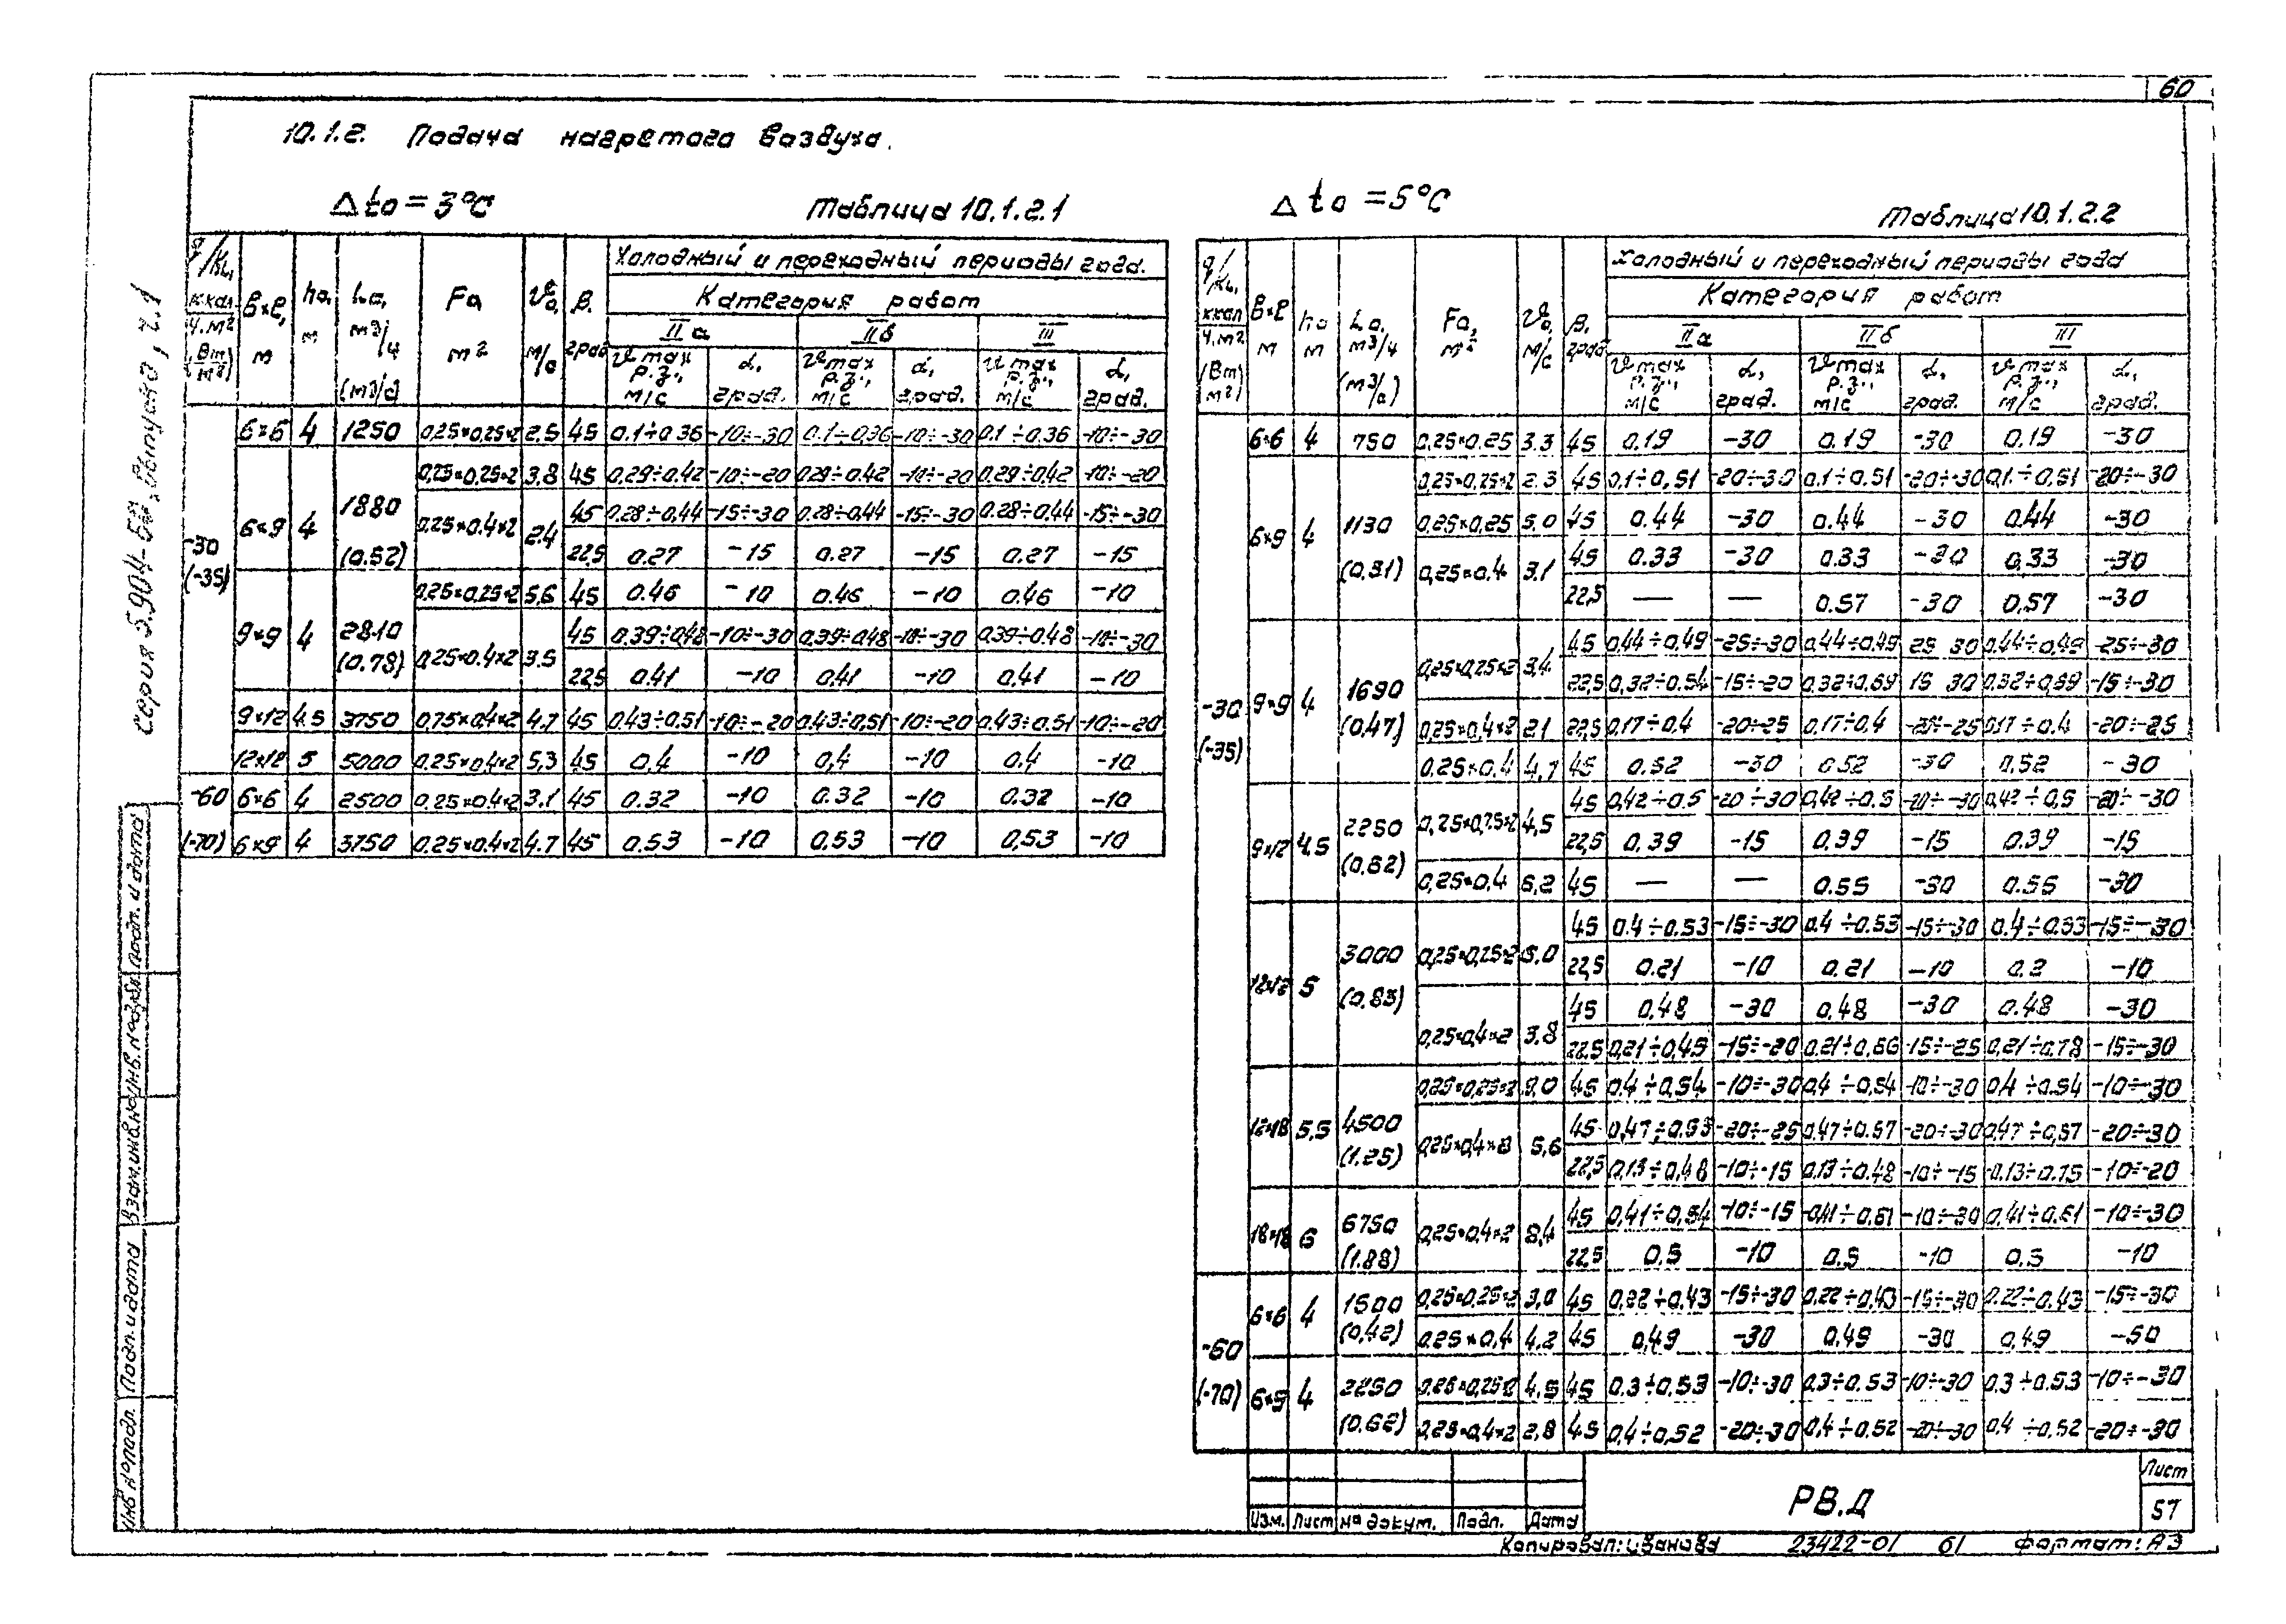 60
10.1.2. Подача нагретого воздуха.
Δto = 3°С Таблица 10.1.2.1
q/KL, ккал/ч.м² (Вт/м²) | B×ℓ, м | ho, м | Lo, м³/ч (м³/с) | Fo, м² | υo, м/с | β, град | Холодный и переходный периоды года.
Категория работ
IIа | IIб | III
υmax р.з., м/с | α, град. | υmax р.з., м/с | α, град. | υmax р.з., м/с | α, град.
-30 (-35) | 6×6 | 4 | 1250 | 0,25×0,25×2 | 2.5 | 45 | 0.1÷0.36 | -10÷-30 | 0.1÷0.36 | -10÷-30 | 0.1÷0.36 | -10÷-30
6×9 | 4 | 1880 (0.52) | 0,25×0,25×2 | 3.8 | 45 | 0.29÷0.42 | -10÷-20 | 0.29÷0.42 | -10÷-20 | 0.29÷0.42 | -10÷-20
0.25×0.4×2 | 2.4 | 45 | 0.28÷0.44 | -15÷-30 | 0.28÷0.44 | -15÷-30 | 0.28÷0.44 | -15÷-30
22,5 | 0.27 | -15 | 0.27 | -15 | 0.27 | -15
9×9 | 4 | 2810 (0.78) | 0.25×0.25×2 | 5,6 | 45 | 0.46 | -10 | 0.46 | -10 | 0.46 | -10
0,25×0.4×2 | 3.5 | 45 | 0.39÷0.48 | -10÷-30 | 0.39÷0.48 | -10÷-30 | 0.39÷0.48 | -10÷-30
22,5 | 0.41 | -10 | 0.41 | -10 | 0.41 | -10
9×12 | 4.5 | 3750 | 0.25×0.4×2 | 4.7 | 45 | 0.43÷0.51 | -10÷-20 | 0.43÷0.51 | -10÷-20 | 0.43÷0.51 | -10÷-20
12×12 | 5 | 5000 | 0.25×0,4×2 | 5,3 | 45 | 0,4 | -10 | 0,4 | -10 | 0.4 | -10
-60 (-70) | 6×6 | 4 | 2500 | 0.25×0.4×2 | 3.1 | 45 | 0.32 | -10 | 0.32 | -10 | 0.32 | -10
6×9 | 4 | 3750 | 0.25×0.4×2 | 4.7 | 45 | 0.53 | -10 | 0.53 | -10 | 0,53 | -10
Δto = 5°С Таблица 10.1.2.2
q/KL, ккал/ч.м² (Вт/м²) | B×ℓ м | ho м | Lo, м³/ч (м³/с) | Fo, м² | υo, м/с | β, град. | Холодный и переходный периоды года
Категория работ
IIа | IIб | III
υmax р.з., м/с | α, град. | υmax р.з., м/с | α, град. | υmax р.з., м/с | α, град.
-30 (-35) | 6×6 | 4 | 750 | 0,25×0.25 | 3.3 | 45 | 0.19 | -30 | 0.19 | -30 | 0.19 | -30
6×9 | 4 | 1130 (0,31) | 0,25×0,25×2 | 2.3 | 45 | 0,1÷0,51 | -20÷-30 | 0.1÷0.51 | -20÷-30 | 0,1÷0,51 | -20÷-30
0,25×0,25 | 5.0 | 45 | 0.44 | -30 | 0.44 | -30 | 0.44 | -30
0,25×0.4 | 3.1 | 45 | 0.33 | -30 | 0.33 | -30 | 0,33 | -30
22,5 | — | — | 0.57 | -30 | 0.57 | -30
9×9 | 4 | 1690 (0,47) | 0,25×0,25×2 | 3,4 | 45 | 0,44÷0,49 | -25÷-30 | 0,44÷0,49 | 25 30 | 0,44÷0,49 | -25÷-30
22,5 | 0,32÷0.54 | -15÷-20 | 0.32÷0.69 | 15 30 | 0,32÷0,69 | -15÷-30
0,25×0,4×2 | 2.1 | 22,5 | 0,17÷0,4 | -20÷25 | 0,17÷0,4 | -20÷-25 | 0.17÷0.4 | -20÷-25
0,25×0,4 | 4,7 | 45 | 0.52 | -30 | 0.52 | -30 | 0,52 | -30
9×12 | 4.5 | 2250 (0.62) | 0,25×0,25×2 | 4,5 | 45 | 0,42÷0.5 | -20÷30 | 0,42÷0.5 | -20÷-30 | 0,42÷0,5 | -20÷-30
22,5 | 0,39 | -15 | 0.39 | -15 | 0.39 | -15
0,25×0,4 | 6,2 | 45 | — | — | 0.55 | -30 | 0.55 | -30
12×12 | 5 | 3000 (0.83) | 0,25×0,25×2 | 6.0 | 45 | 0.4÷0.53 | -15÷-30 | 0.4÷0.53 | -15÷-30 | 0.4÷0.53 | -15÷-30
22,5 | 0.21 | -10 | 0.21 | -10 | 0.2 | -10
0,25×0,4×2 | 3,8 | 45 | 0,48 | -30 | 0,48 | -30 | 0.48 | -30
22.5 | 0,21÷0,45 | -15÷-20 | 0.21÷0,66 | -15÷-25 | 0,21÷0,78 | -15÷-30
12×18 | 5,5 | 4500 (1.25) | 0,25×0,25×2 | 9,0 | 45 | 0.4÷0,54 | -10÷-30 | 0,4÷0,54 | -10÷-30 | 0.4÷0.54 | -10÷-30
0,25×0,4×2 | 5,6 | 45 | 0,47÷0.53 | -20÷-25 | 0,47÷0.57 | -20÷-30 | 0,47÷0,57 | -20÷-30
22,5 | 0,13÷0,48 | -10÷-15 | 0,13÷0.48 | -10÷-15 | 0.13÷0.75 | -10÷-20
18×18 | 6 | 6750 (1.88) | 0,25×0.4×2 | 8,4 | 45 | 0,41÷0,54 | -10÷-15 | 0,41÷0,61 | -10÷-30 | 0,41÷0.61 | -10÷-30
22,5 | 0.5 | -10 | 0.5 | -10 | 0.5 | -10
-60 (-70) | 6×6 | 4 | 1500 (0,42) | 0,25×0,25×2 | 3,0 | 45 | 0,22÷0,43 | -15÷-30 | 0,22÷0,43 | -15÷-30 | 0.22÷0.43 | -15÷-30
0.25×0,4 | 4.2 | 45 | 0,49 | -30 | 0,49 | -30 | 0,49 | -50
6×9 | 4 | 2250 (0.62) | 0,25×0,25×2 | 4,5 | 45 | 0.3÷0.53 | -10÷-30 | 0,3÷0.53 | -10÷-30 | 0.3÷0.53 | -10÷-30
0,25×0,4×2 | 2,8 | 45 | 0,4÷0,52 | -20÷-30 | 0,4÷0,52 | -20÷-30 | 0.4÷0,52 | -20÷-30
серия 5.904-50, Выпуск 0, ч.1
Инв. № подл. Подп. и дата Взам. инв. № Инв. № дубл. подп. и дата
Изм. Лист № докум. Подп. Дата
РВ.Д
Лист
57
Копировал: Иванова 23422-01 61 формат: А3